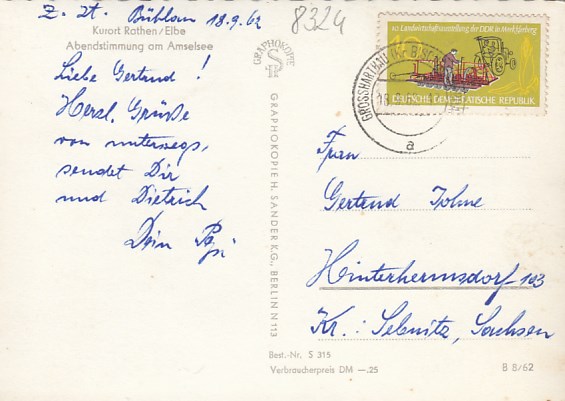 z. Zt. Bühlau 18.9.62
8324
Kurort Rathen/Elbe
Abendstimmung am Amselsee
Liebe Gertaud!
Herzl. Grüße
von unterwegs,
sendet Dir
und Dietrich
Dein Papi
GRAPHOKOPIE
GRAPHOKOPIE H. SANDER K.G., BERLIN N 113
10. Landwirtschaftsausstellung der DDR in Markkleeberg
10
DEUTSCHE DEMOKRATISCHE REPUBLIK
GROSSHARTHAU
a
Frau
Gertaud
Hinterhermsdorf 103
Kr.: Sebnitz, Sachsen
Best.-Nr. S 315
Verbraucherpreis DM —.25
B 8/62